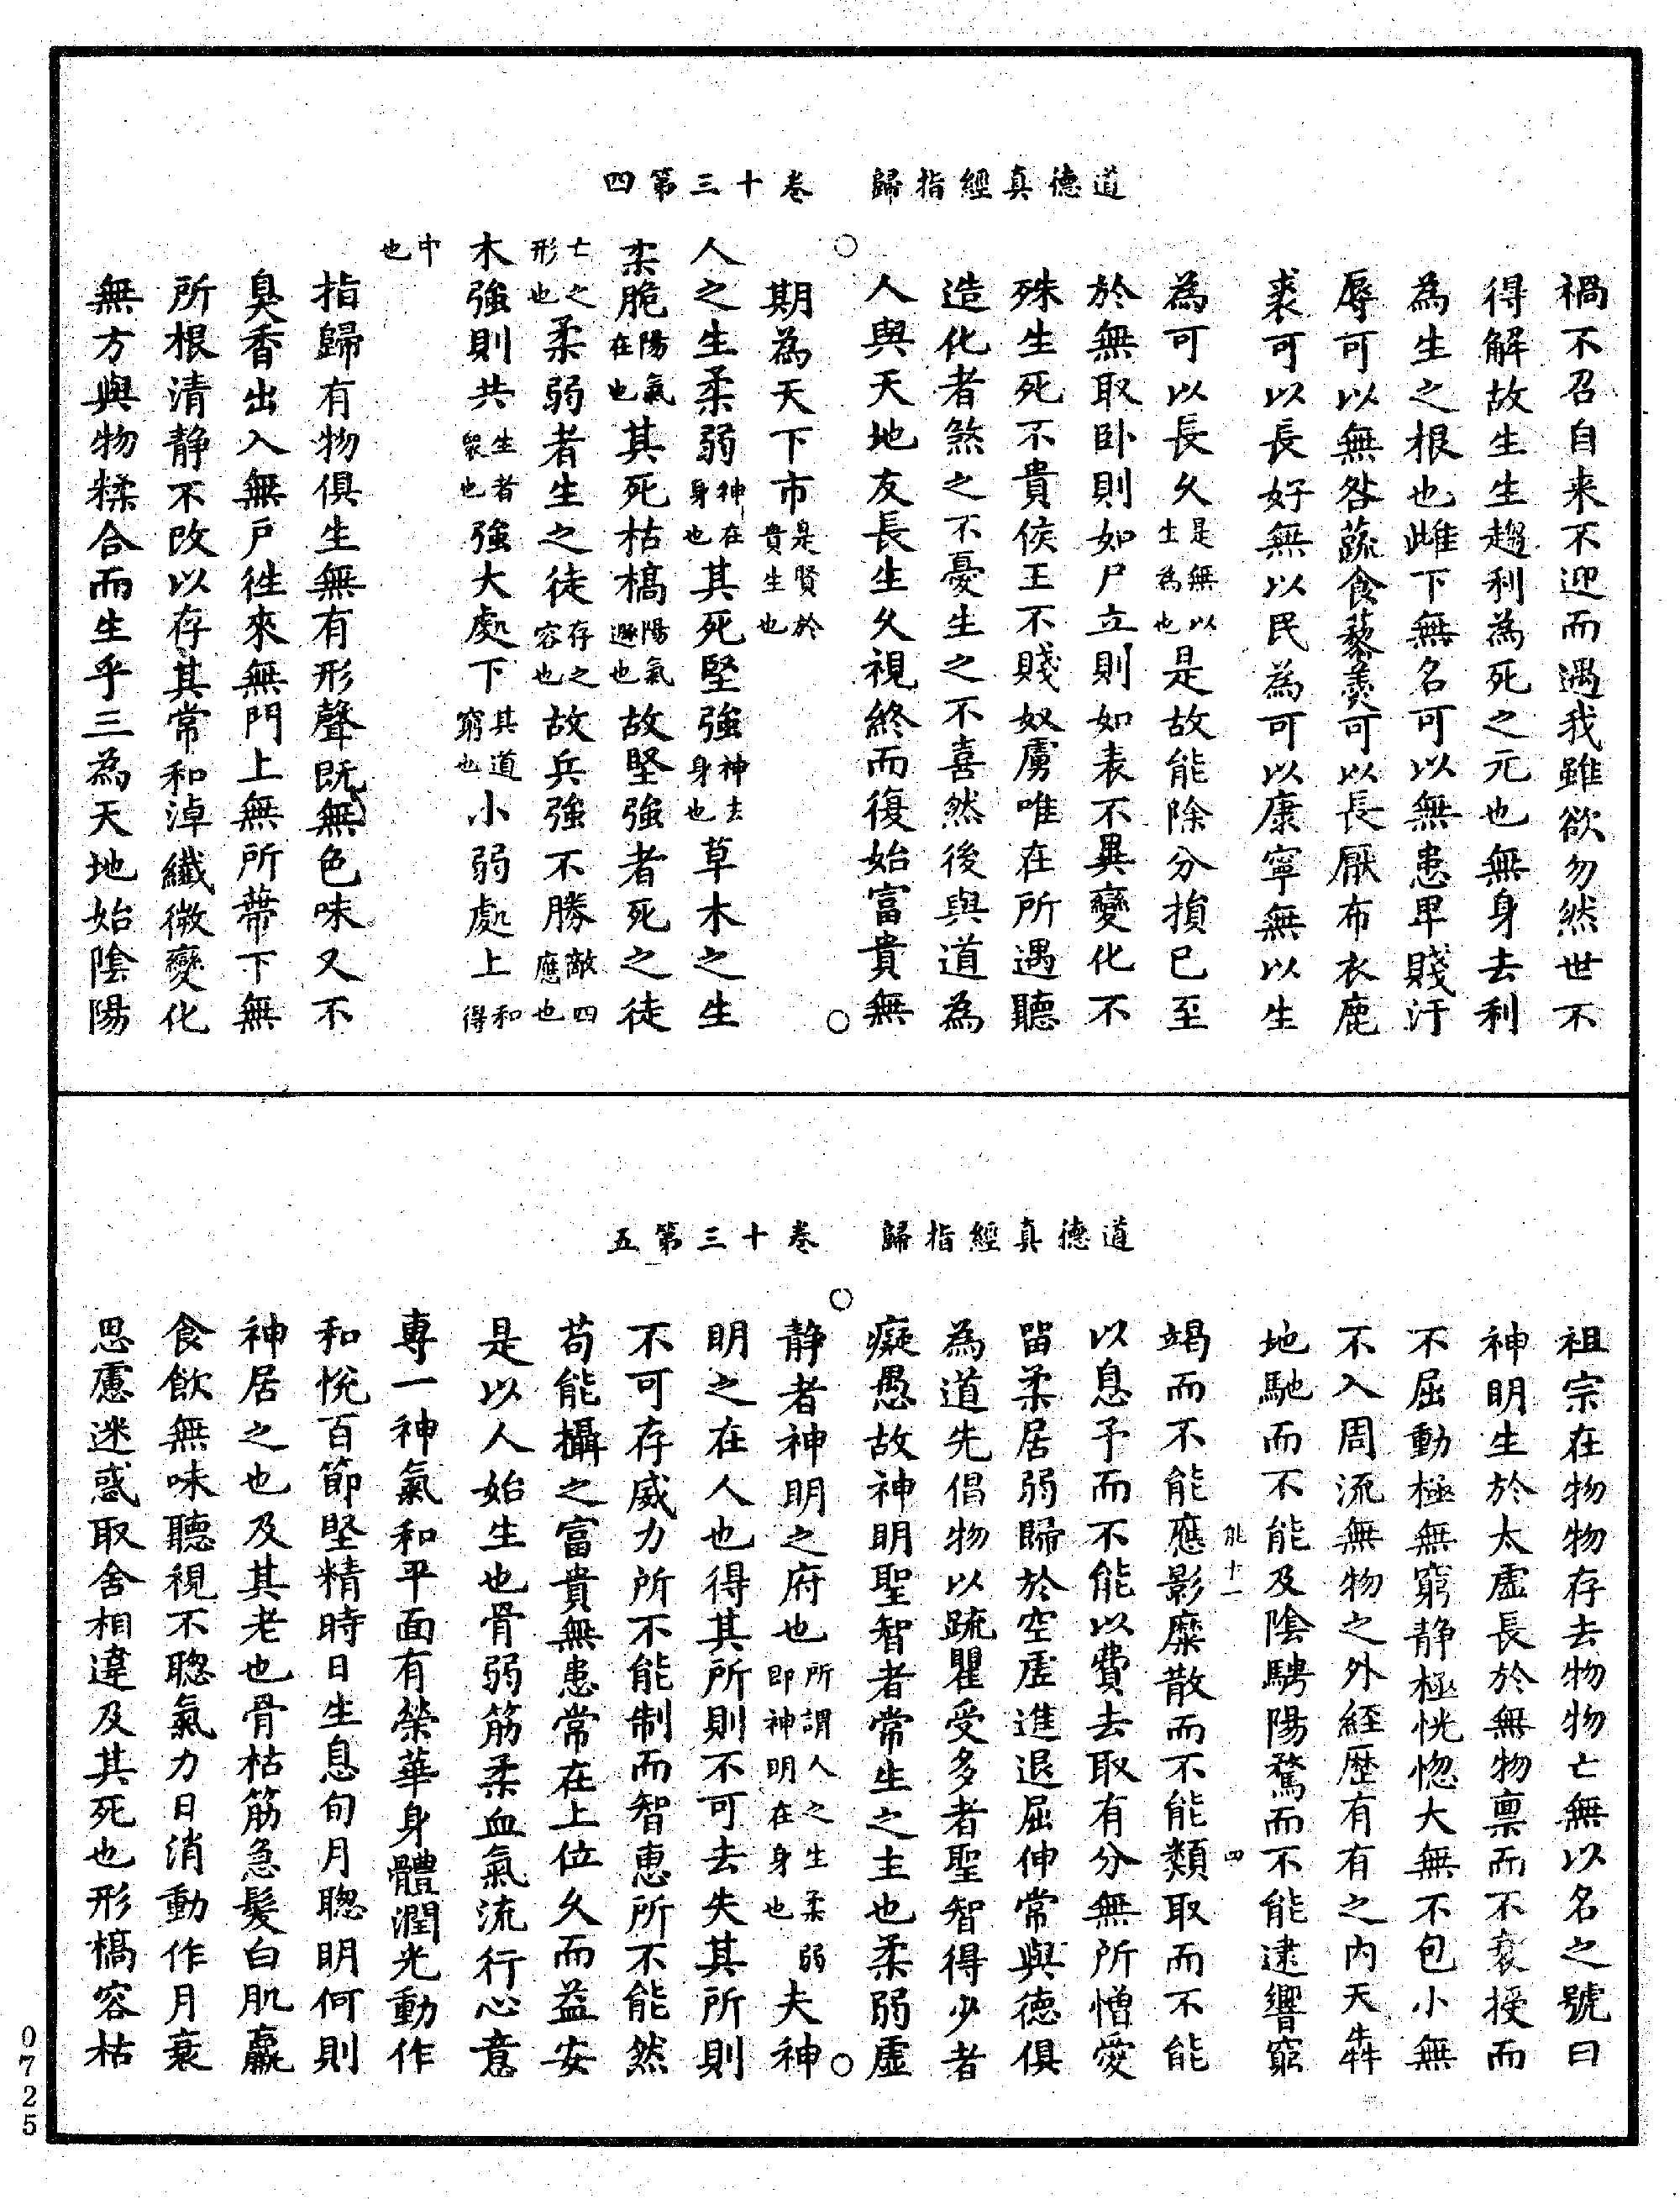 道德真經指歸　卷十三第四
禍不召自来不迎而遇我雖欲勿然世不
得解故生生趨利為死之元也無身去利
為生之根也雌下無名可以無患卑賤汙
辱可以無咎蔬食藜羹可以長厭布衣鹿
裘可以長好無以民為可以康寧無以生
為可以長久是無以生為也是故能除分損已至
於無取卧則如尸立則如表不異變化不
殊生死不貴侯王不賤奴虜唯在所遇聽
造化者煞之不憂生之不喜然後與道為
人與天地友長生久視終而復始富貴無
期為天下市是賢於貴生也
人之生柔弱神在身也其死堅強神去身也草木之生
柔脆陽氣在也其死枯槁陽氣遯也故堅強者死之徒
亡之形也柔弱者生之徒存之容也故兵強不勝敵四應也
木強則共生者衆也強大處下其道窮也小弱處上和得
中也
指歸有物俱生無有形聲既無色味又不
臭香出入無戶徃來無門上無所蔕下無
所根清静不改以存其常和淖纖微變化
無方與物糅合而生乎三為天地始陰陽
道德真經指歸　卷十三第五
祖宗在物物存去物物亡無以名之號曰
神明生於太虛長於無物禀而不衰授而
不屈動極無窮静極恍惚大無不包小無
不入周流無物之外経歷有有之內天犇
地馳而不能及陰騁陽騖而不能逮響窮
竭而不能應影糜散而不能類取而不能
能十一　四
以息予而不能以費去取有分無所憎愛
留柔居弱歸於空虛進退屈伸常與德俱
為道先倡物以疏瞿受多者聖智得少者
癡愚故神明聖智者常生之主也柔弱虛
静者神明之府也所謂人之生柔弱即神明在身也夫神
明之在人也得其所則不可去失其所則
不可存威力所不能制而智惠所不能然
苟能攝之富貴無患常在上位久而益安
是以人始生也骨弱筋柔血氣流行心意
専一神氣和平面有榮華身體潤光動作
和恱百節堅精時日生息旬月聰明何則
神居之也及其老也骨枯筋急髮白肌羸
食飲無味聽視不聰氣力日消動作月衰
思慮迷惑取舍相違及其死也形槁容枯
0725